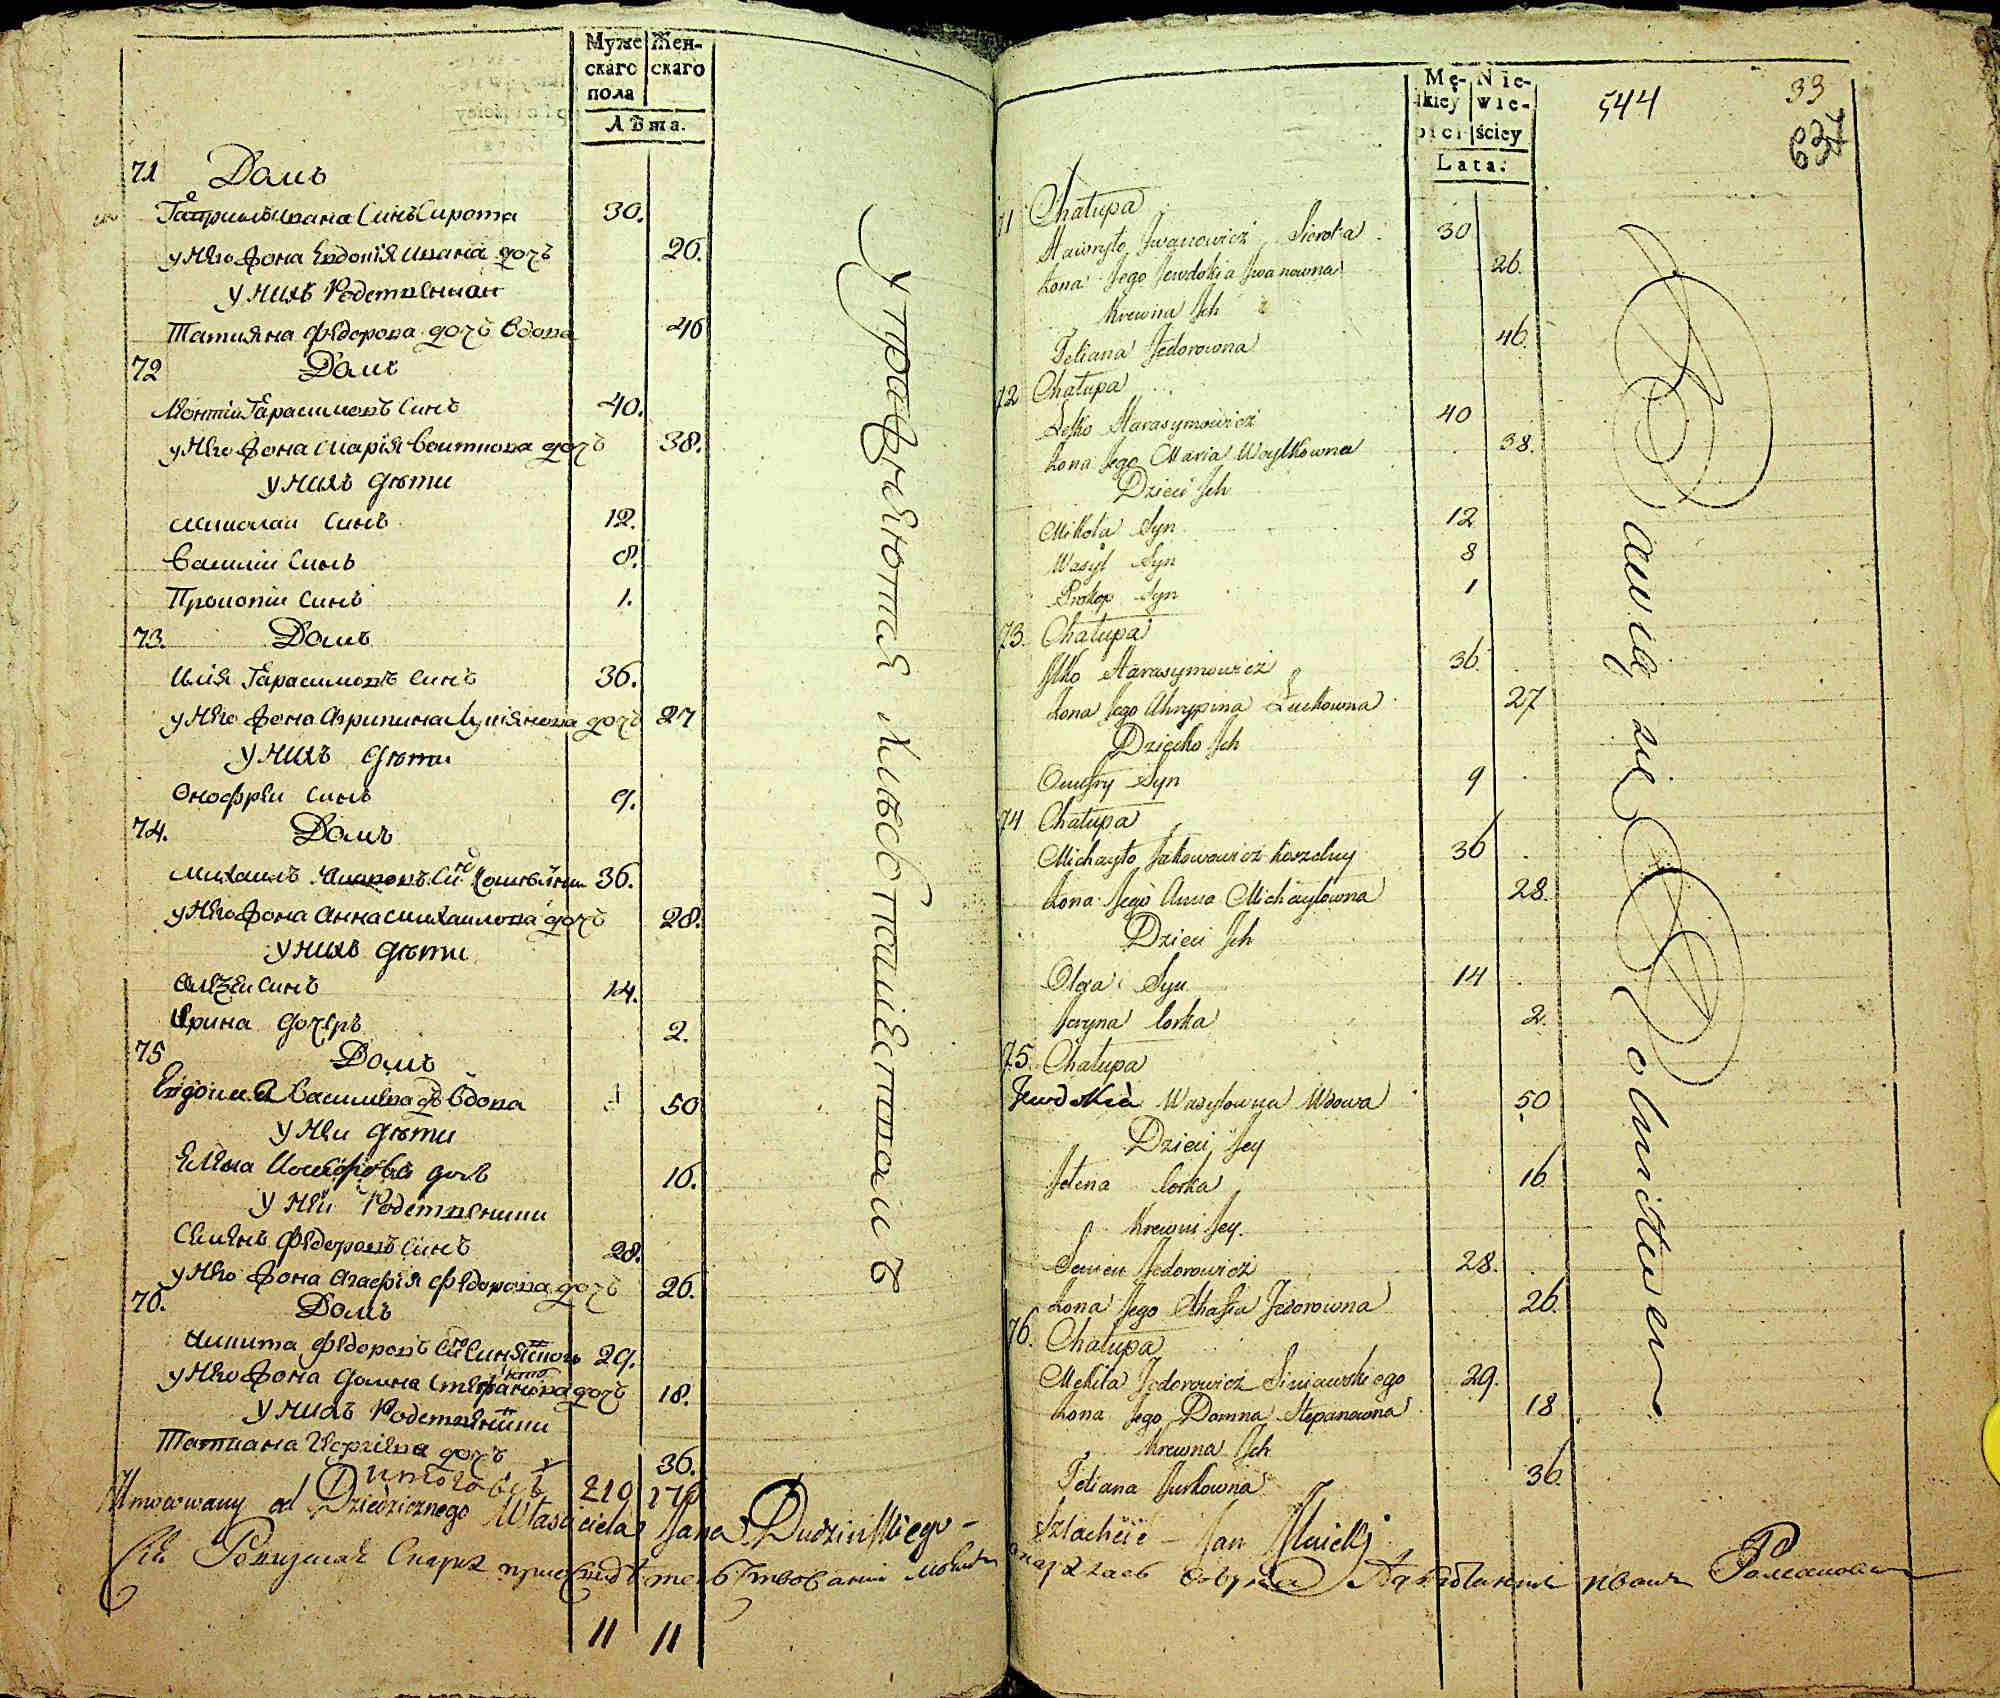 Муже Жен-
скаго скаго
пола
Лѣта.
71 Домъ
Гаврилъ Ивана Синъ Сирота 30.
у Него Жона Евдокія Ивана дочъ 26.
у Нихъ Родственная
Татияна Федорова дочъ Вдова 46
72 Домъ
Леонтій Гарасимовъ Синъ 40.
у Него Жона Марія Воиткова дочъ 38.
у Нихъ Дѣти
Миколай Синъ 12.
Василій Синъ 8.
Прокопій Синъ 1.
73. Домъ
Илія Гарасимовъ Синъ 36.
у Него Жона Агрипина Лукіянова дочъ 27
у Нихъ Дѣти
Онофрей Синъ 9.
74. Домъ
Михаилъ 36.
у Него Жона Анна Михаилова дочъ 28.
у Нихъ Дѣти
Алезеи Синъ 14.
Ирина дочеръ 2.
75 Домъ
Евдокия Василева дъ Вдова 50
у Неи Дѣти
Елена дочъ 16.
у Ней Родственники
Семенъ Федоровъ Синъ 28.
у Него Жона Агафія Федорова дочъ 26.
76. Домъ
Никита Федоровъ Синъ 29.
у Него Жона Домна Стефанова дочъ 18.
у Нихъ Родственники
Татиана Георгіева дочъ 36.
Итого 210 176
od Dziedzicznego Własciciela Jana Dudzińskiego
11 11
Упражняются хлѣбопашествомъ
Mę- Nie-
skiey wie-
płci ściey
Lata.
544
33
637
71 Chałupa
Hawryło Iwanowicz Sierota 30
Żona Jego Jewdokia Iwanowna 26.
Krewna Ich
Tetiana Fedorowna 46.
72 Chałupa
Leśko Harasymowicz 40
Żona Jego Maria Woytkowna 38.
Dzieci Ich
Mikoła Syn 12
Wasyl Syn 8
Prokop Syn 1
73. Chałupa
Ilko Harasymowicz 36.
Żona Jego Ahrypina Łuckowna 27
Dziecko Ich
Onufry Syn 9
74 Chałupa
Michayło Jakowowicz Koszelny 36
Żona Jego Anna Michayłowna 28.
Dzieci Ich
Olexa Syn 14
Jaryna Corka 2.
75. Chałupa
Jewdokia Wasylowna Wdowa 50
Dzieci Jey
Jełena Corka 16
Krewni Jey.
Semen Fedorowicz 28.
Żona Jego Ahafia Fedorowna 26.
76. Chałupa
Mekita Fedorowicz Siniawskiego 29.
Żona Jego Domna Stepanowna 18
Krewna Ich
Tetiana Jurkowna 36.
Szlachcic – Jan Ilnicki
Bawią się Rolnictwem